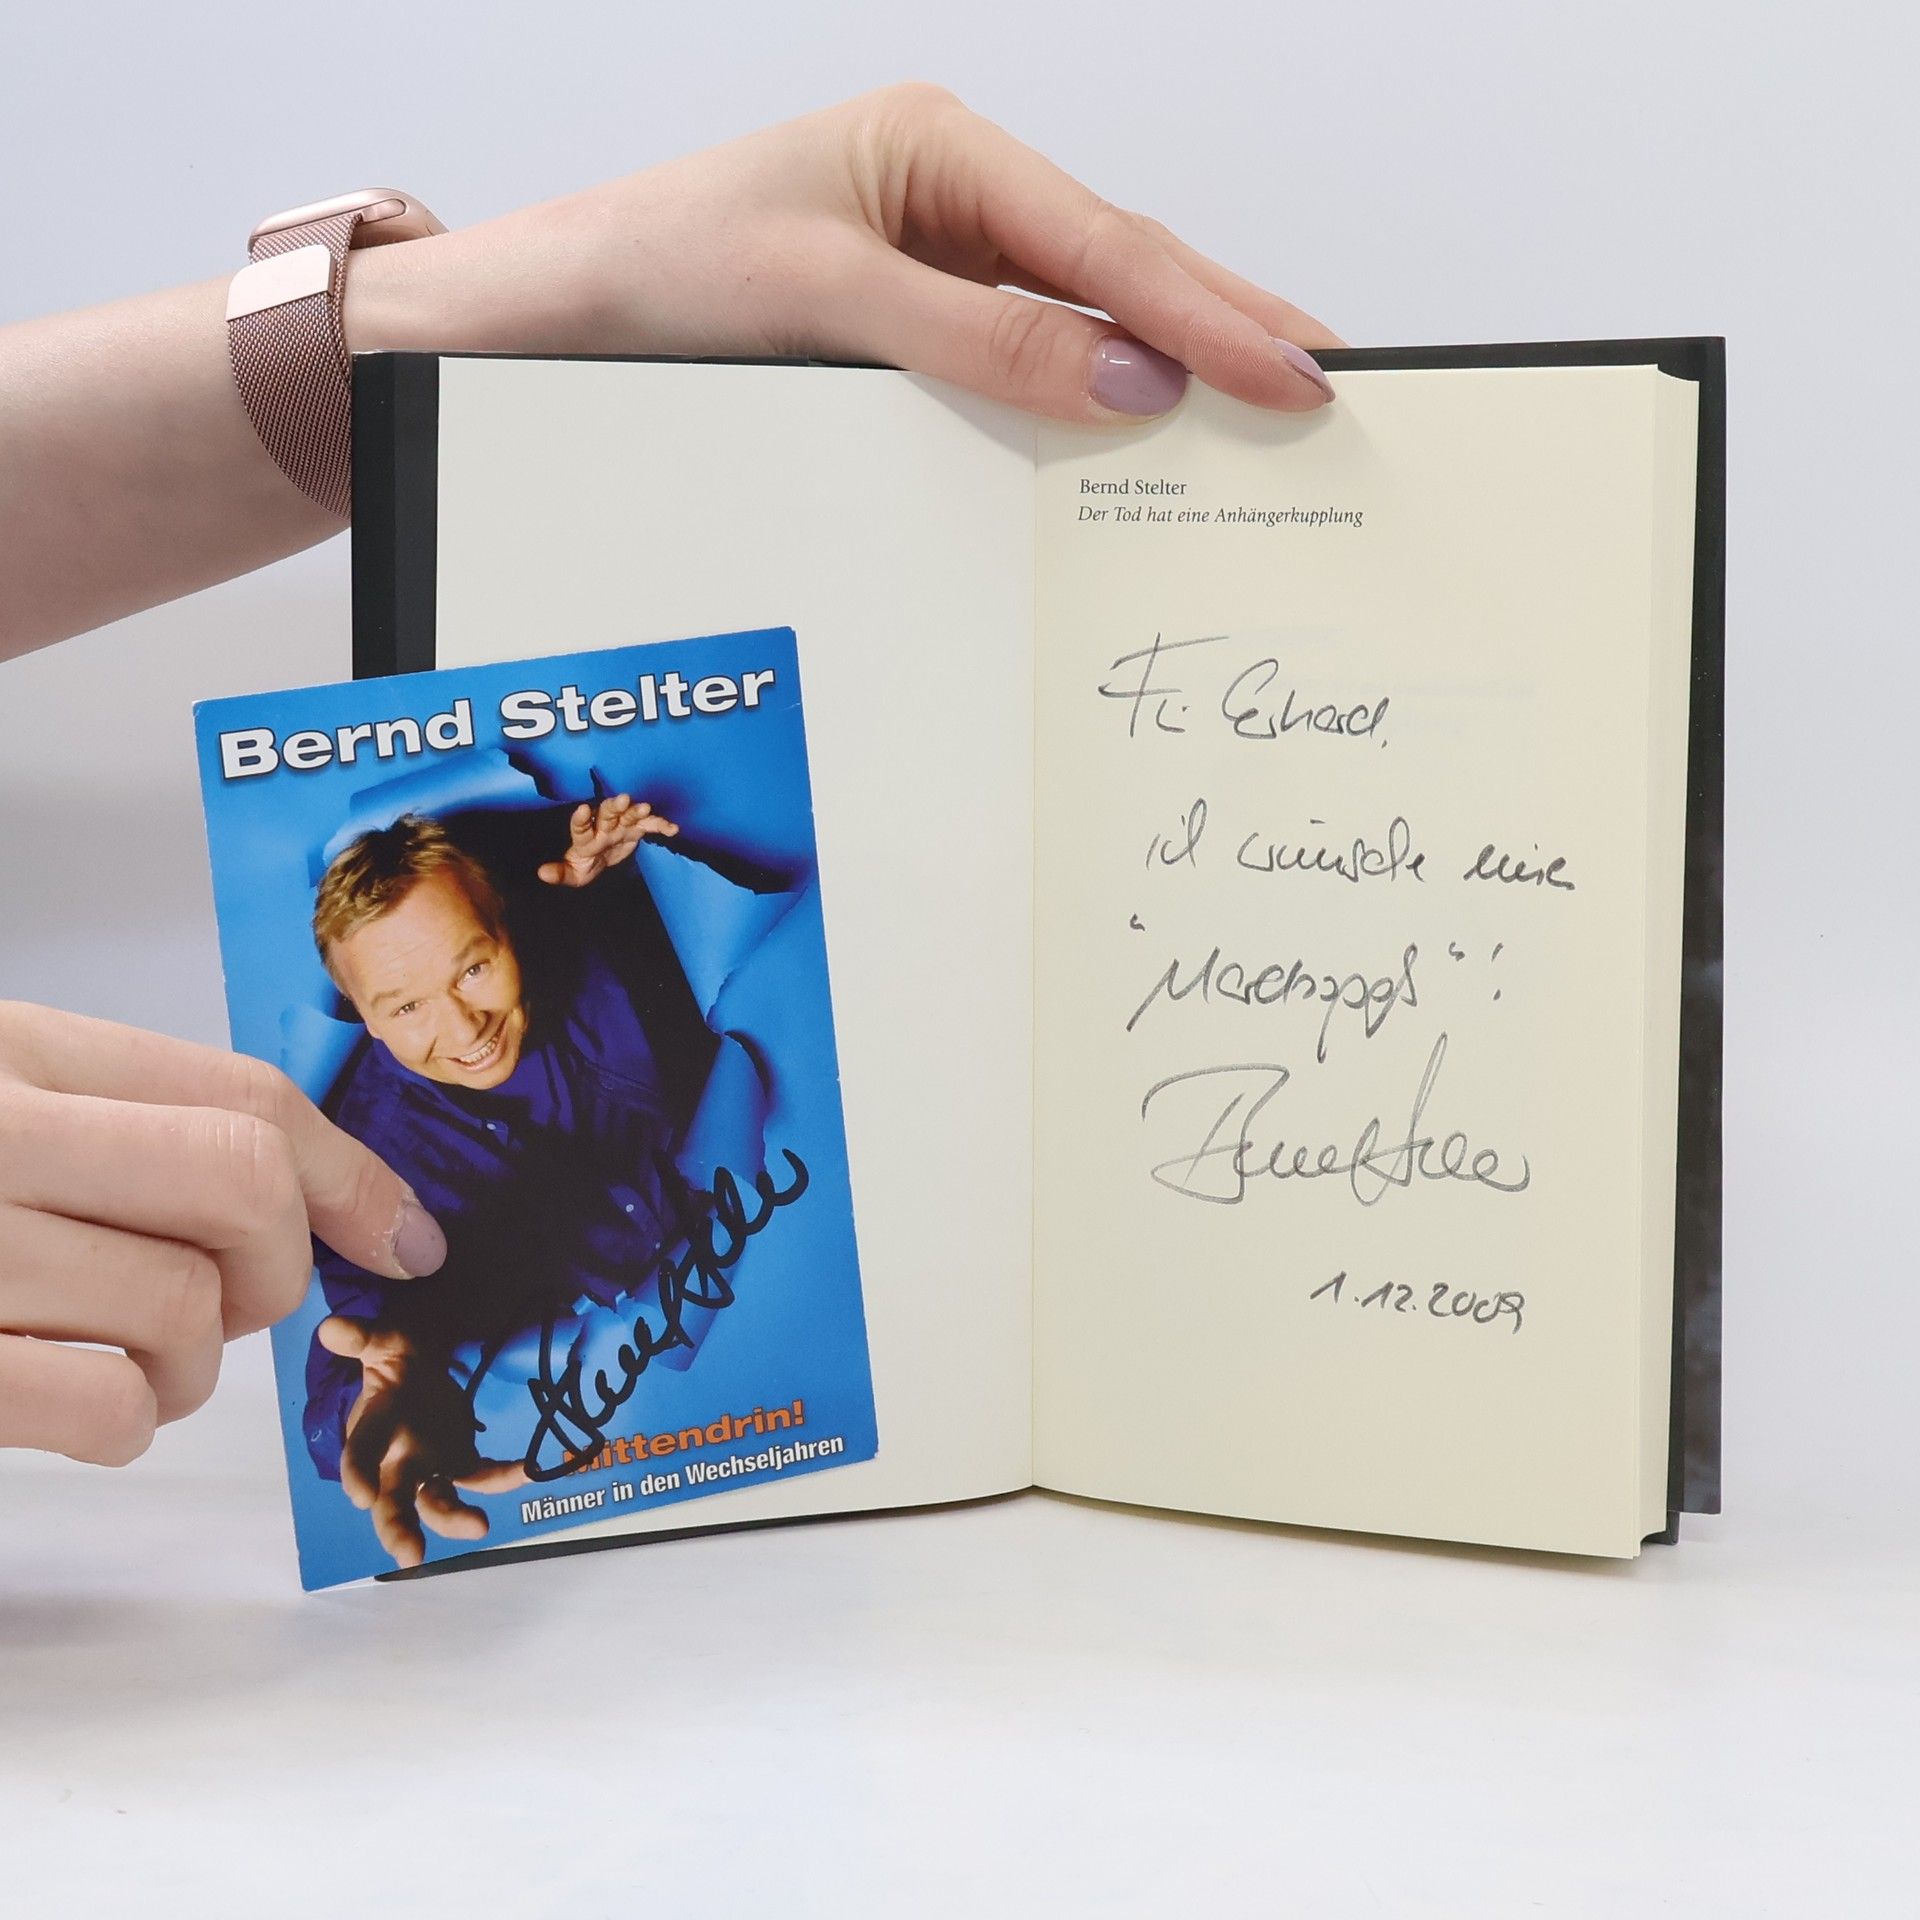 Bernd Stelter
Mittendrin!
Männer in den Wechseljahren
Bernd Stelter
Bernd Stelter
Der Tod hat eine Anhängerkupplung
Für Gerhard,
ich wünsche eine
Bernd Stelter
1.12.2009